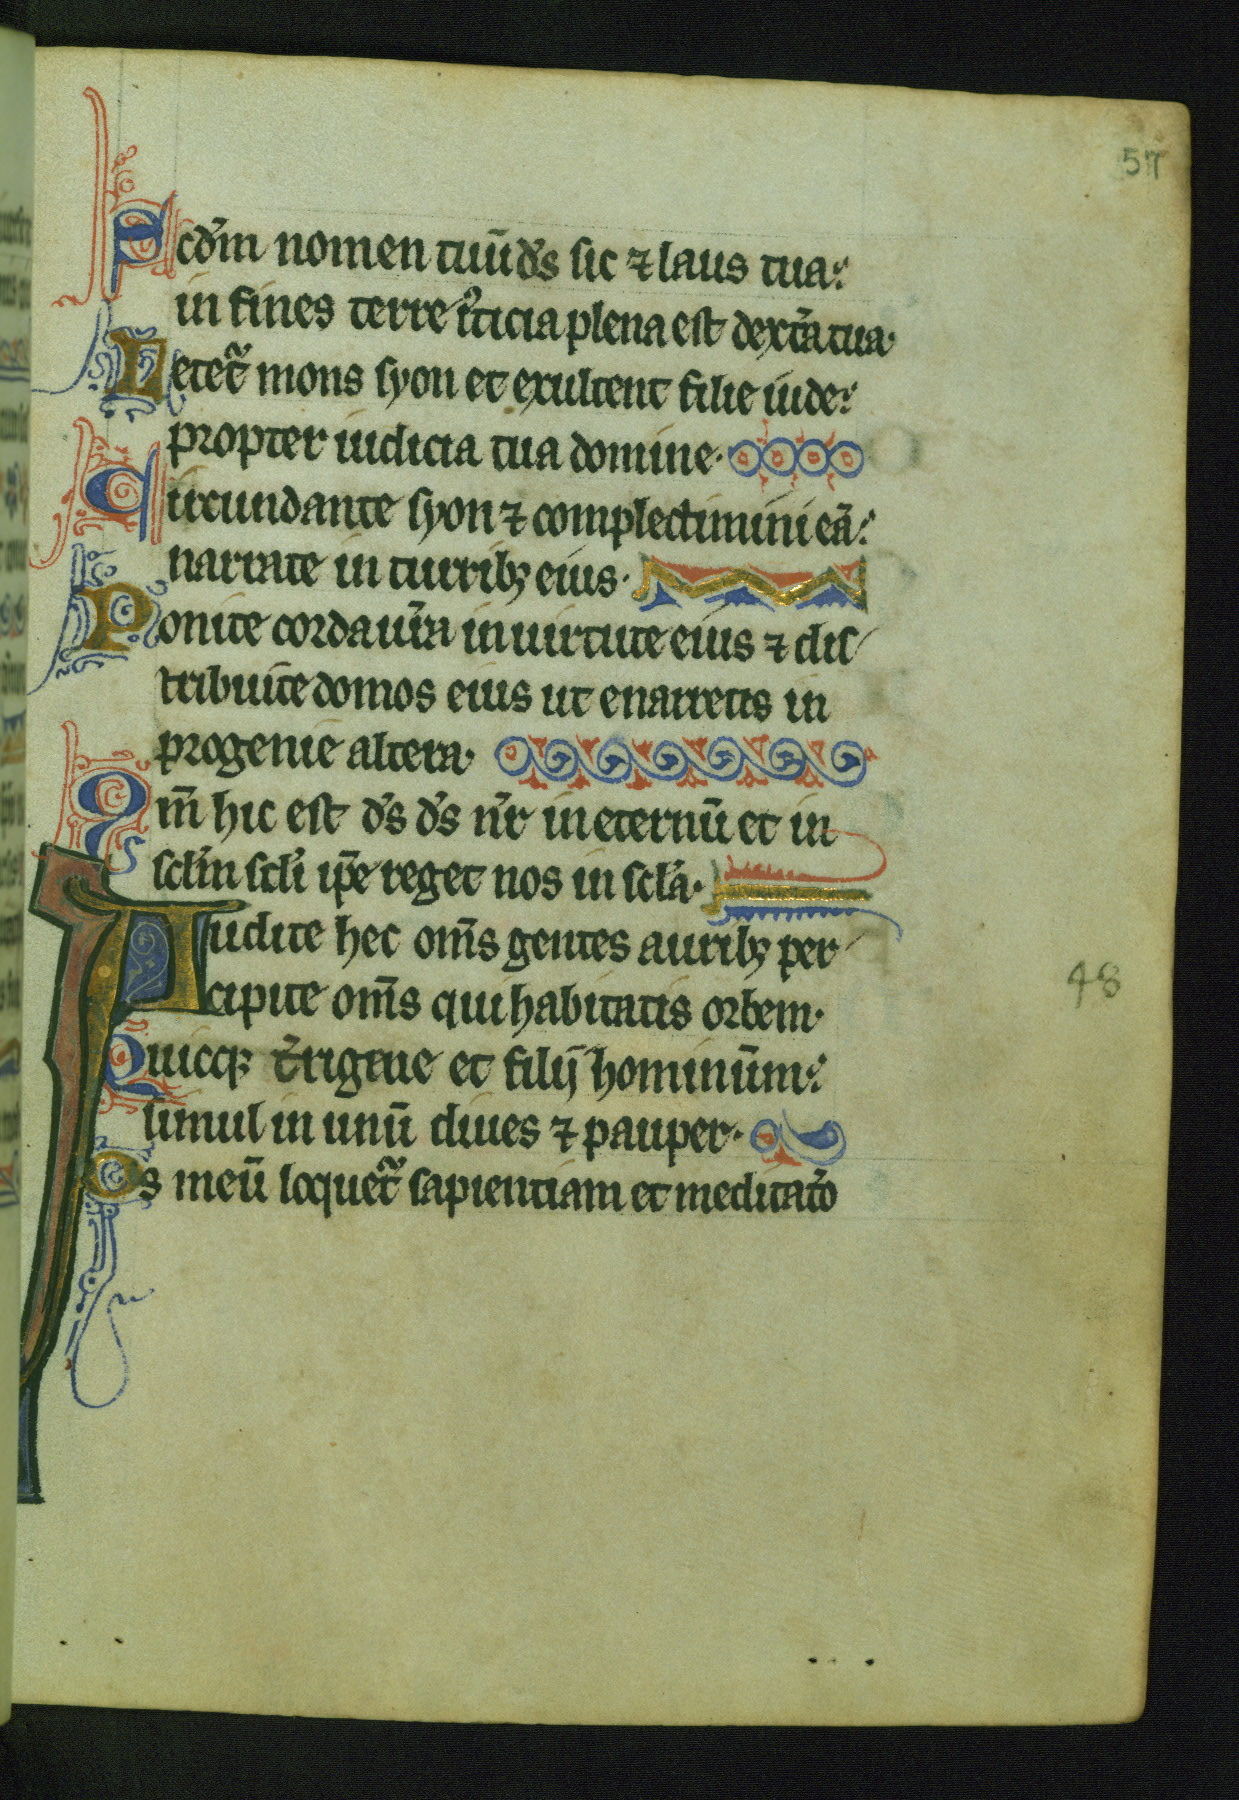 57
Scd̄m nomen tuū ds̄ sic ⁊ laus tua:
in fines terre iꝰticia plena est dext̄a tua.
Letet᷑ mons syon et exultent filie iude:
propter iudicia tua domine.
Circundante syon ⁊ complectimini eā:
narrate in turribꝫ eius.
Ponite corda ur̄a in uirtute eius ⁊ dis
tribuite domos eius ut enarretis in
progenie altera.
Qm̄ hic est ds̄ ds̄ nr̄ in eternū et in
scl̄m scl̄i ip̄e reget nos in scl̄a.
Audite hec om̄s gentes auribꝫ per
cipite om̄s qui habitatis orbem.
48
Quicqꝫ t̄rigene et filij hominūm:
simul in unū diues ⁊ pauper.
Os meū loquet᷑ sapientiam et meditat̄o